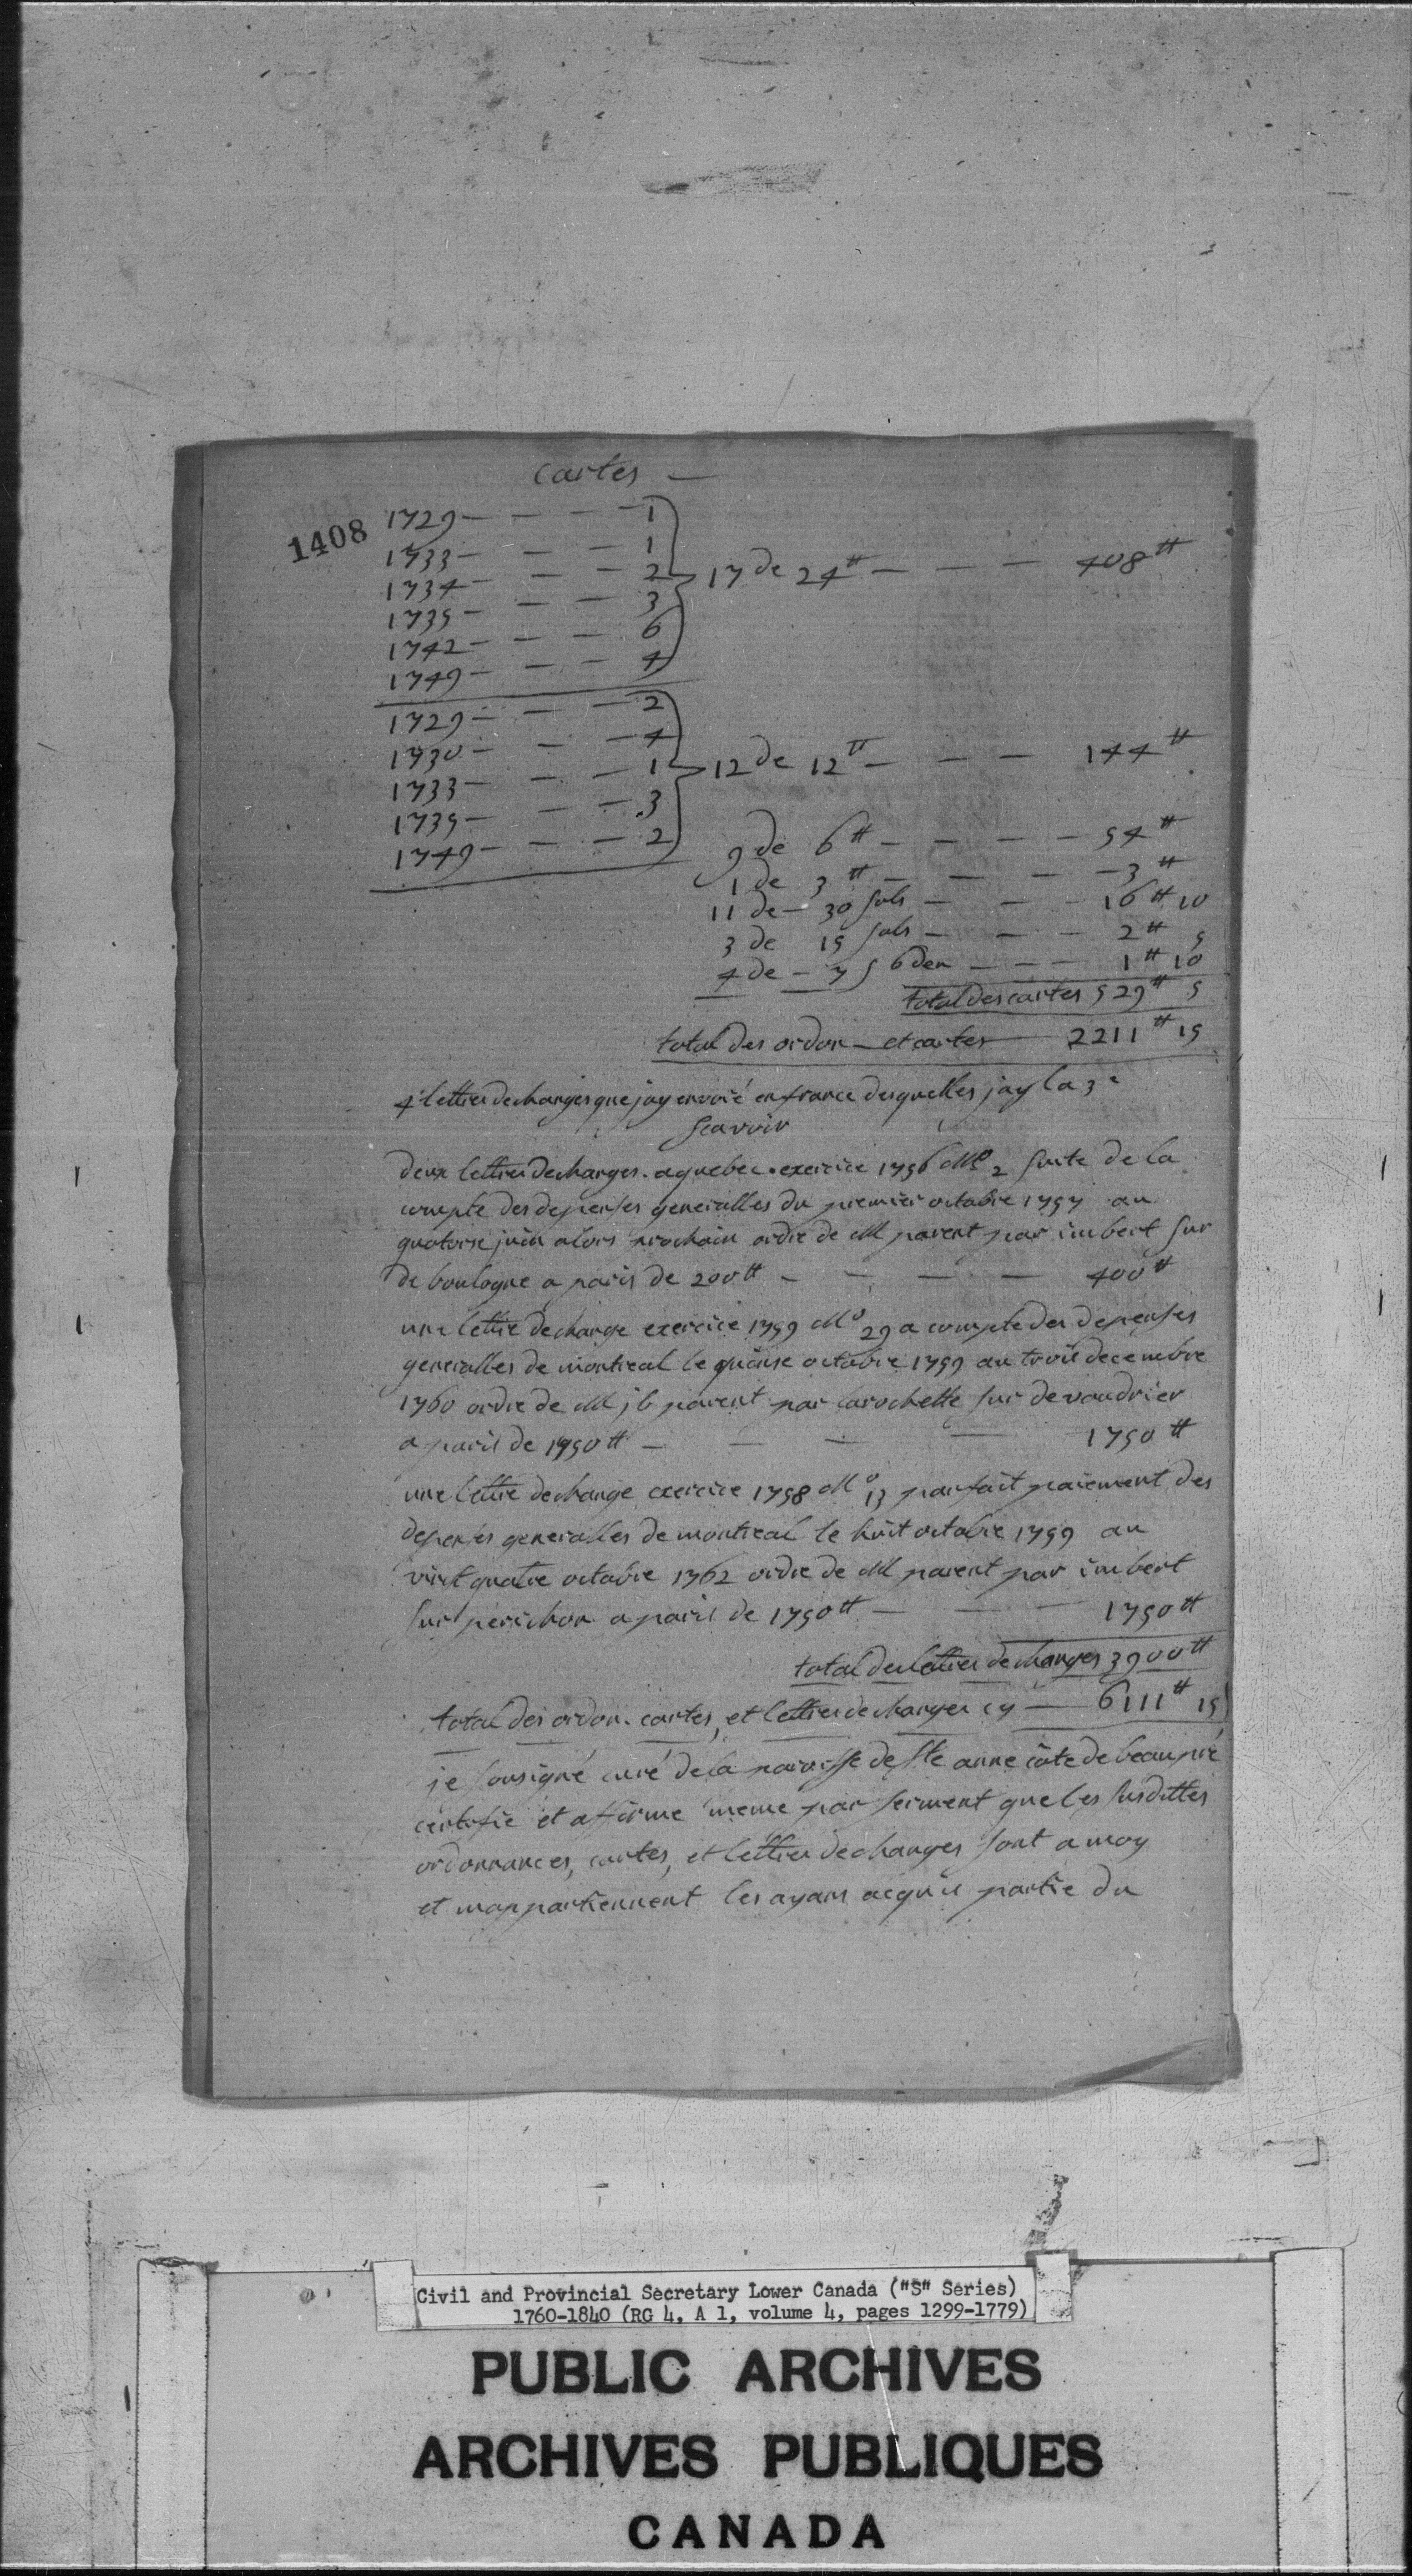 cartes —
1408
1729 — — — 1
1733 — — — 1
1734 — — — 2
17 de 24# — — — 408#
1735 — — — 3
1742 — — — 6
1749 — — — 4
1729 — — — 2
1730 — — — 4
1733 — — — 1
12 de 12# — — — 144#
1735 — — — 3
1749 — — — 2
9 de 6# — — — — 54#
1 de 3# — — — — 3#
11 de — 30 sols — — — 16# 10
3 de 15 sols — — — 2# 5
4 de — 7 s 6 den — — — 1# 10
total des cartes 529# 5
total des ordon — et cartes — 2211# 15
4 lettres dechanges que jay envoié en france desquelles jay la 3e
scavoir
deux lettres dechanges. a quebec. exercice 1756 No 2 suite de la
compte des depenses generalles du premier octobre 1757 au
quatorse juin alors prochain ordre de M parent par imbert sur
de boulogne a paris de 200# — — — — 400#
une lettre dechange exercice 1759 No 29 a compte des depenses
generalles de montreal le quinse octobre 1759 au trois decembre
1760 ordre de M j b parent par larochette sur devaudrier
a paris de 1750# — — — — 1750#
une lettre dechange exercice 1758 No 13 parfait paiement des
depenses generalles de montreal le huit octobre 1759 au
vint quatre octobre 1762 ordre de M parent par imbert
sur perichon a paris de 1750# — — — 1750#
total des lettres dechanges 3900#
total des ordon. cartes, et lettres dechanges cy — 6111# 15
je sousigné curé de la paroisse de Ste anne côte de beaupré
certifie et affirme meme par serment que les susdittes
ordonnances, cartes, et lettres dechanges sont a moy
et mappartiennent les ayans acquis partie du
Civil and Provincial Secretary Lower Canada ("S" Series)
1760-1840 (RG 4, A 1, volume 4, pages 1299-1779)
PUBLIC ARCHIVES
ARCHIVES PUBLIQUES
CANADA